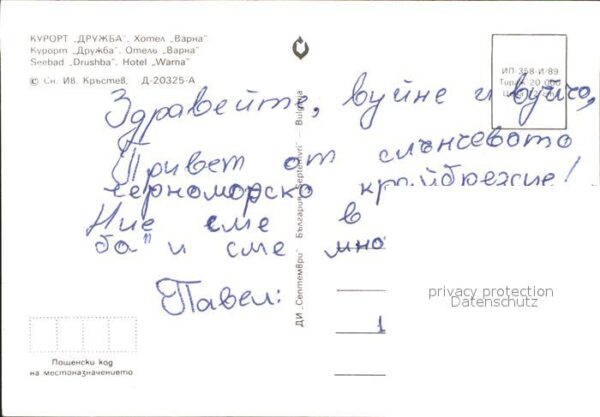 КУРОРТ „ДРУЖБА“. Хотел „Варна“
Курорт „Дружба“. Отель „Варна“
Seebad „Drushba“. Hotel „Warna“
© Сн. Ив. Кръстев, Д-20325-А
ИП-358-И/89
Тираж 20 000
Здравейте, вуйне и вуйчо,
Привет от слънчевото
черноморско крайбрежие!
Ние сме в
ба" и сме мно
Павел:
1
ДИ „Септември“ България „Septemvri“ — Bulgaria
privacy protection
Datenschutz
Пощенски код
на местоназначението